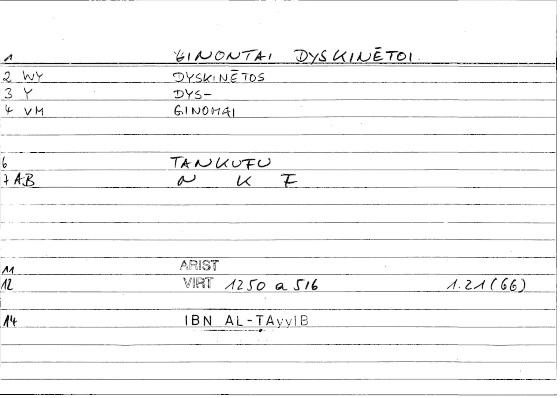 1 GINONTAI DYSKINĒTOI
2 WY DYSKINĒTOS
3 Y DYS-
4 VM GINOMAI
6 TANKUFU
7 AB N K F
11 ARIST
12 VIRT 1250 a 516 1.21 (66)
14 IBN AL-ṬAyyIB